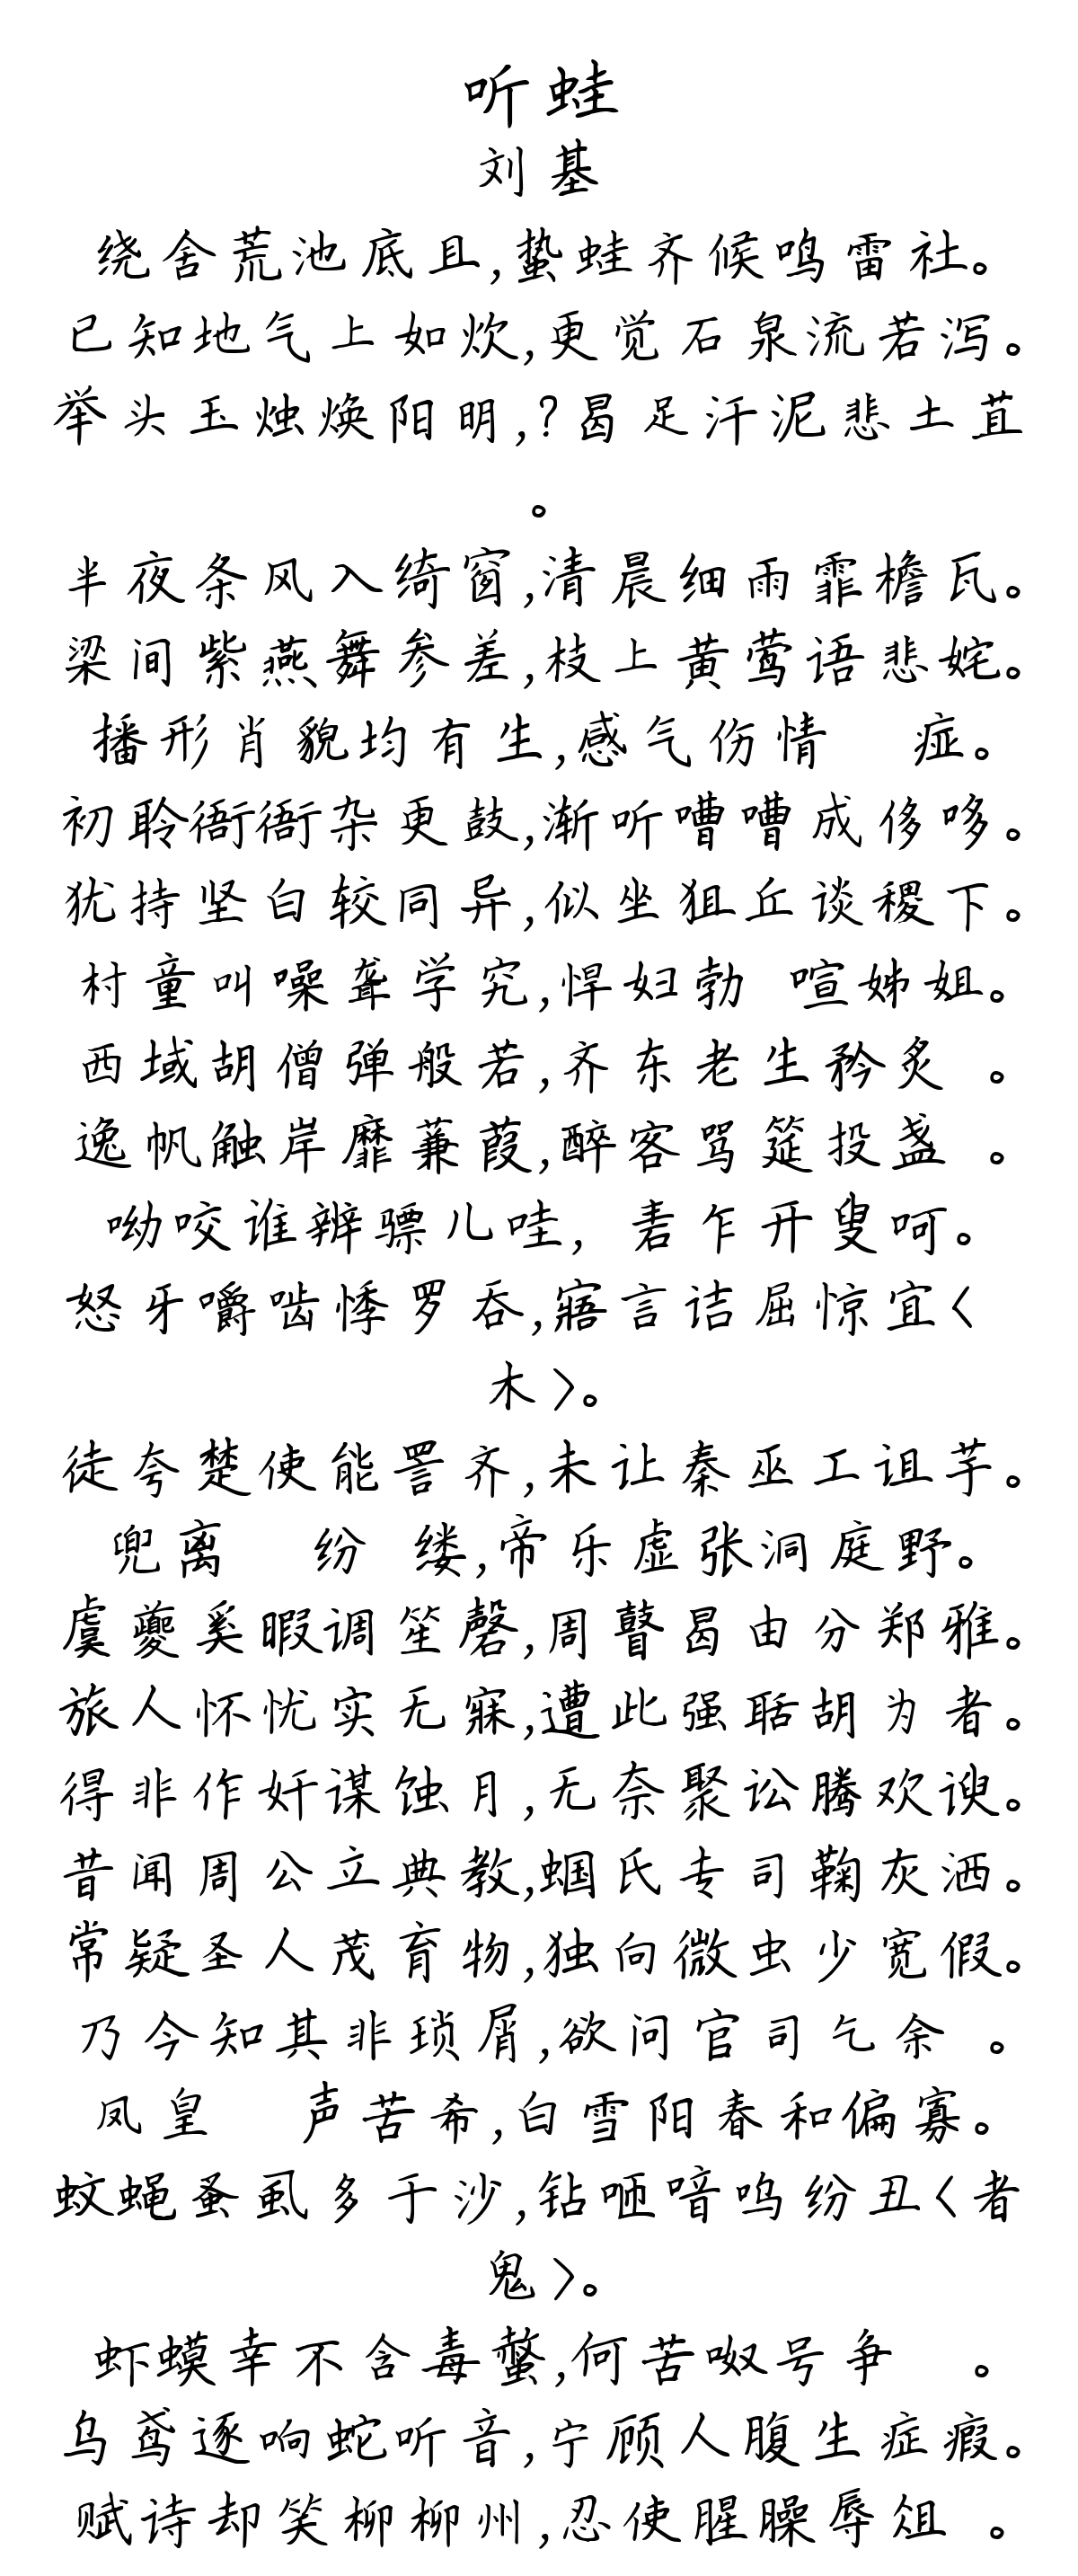 听蛙
刘基
绕舍荒池底且,蛰蛙齐候鸣雷社。
已知地气上如炊,更觉石泉流若泻。
举头玉烛焕阳明,?曷足汗泥悲土苴
。
半夜条风入绮窗,清晨细雨霏檐瓦。
梁间紫燕舞参差,枝上黄莺语悲姹。
播形肖貌均有生,感气伤情 症。
初聆衙衙杂更鼓,渐听嘈嘈成侈哆。
犹持坚白较同异,似坐狙丘谈稷下。
村童叫噪聋学究,悍妇勃 喧姊姐。
西域胡僧弹般若,齐东老生矜炙 。
逸帆触岸靡蒹葭,醉客骂筵投盏 。
呦咬谁辨骠儿哇, 砉乍开叟呵。
怒牙嚼啮悸罗吞,寤言诘屈惊宜〈
木〉。
徒夸楚使能詈齐,未让秦巫工诅芋。
兜离 纷 缕,帝乐虚张洞庭野。
虞夔奚暇调笙磬,周瞽曷由分郑雅。
旅人怀忧实无寐,遭此强聒胡为者。
得非作奸谋蚀月,无奈聚讼腾欢谀。
昔闻周公立典教,蝈氏专司鞠灰洒。
常疑圣人茂育物,独向微虫少宽假。
乃今知其非琐屑,欲问官司乞余 。
凤皇 声苦希,白雪阳春和偏寡。
蚊蝇蚤虱多于沙,钻咂喑呜纷丑〈者
鬼〉。
虾蟆幸不含毒螫,何苦呶号争 。
乌鸢逐响蛇听音,宁顾人腹生症瘕。
赋诗却笑柳柳州,忍使腥臊辱俎 。